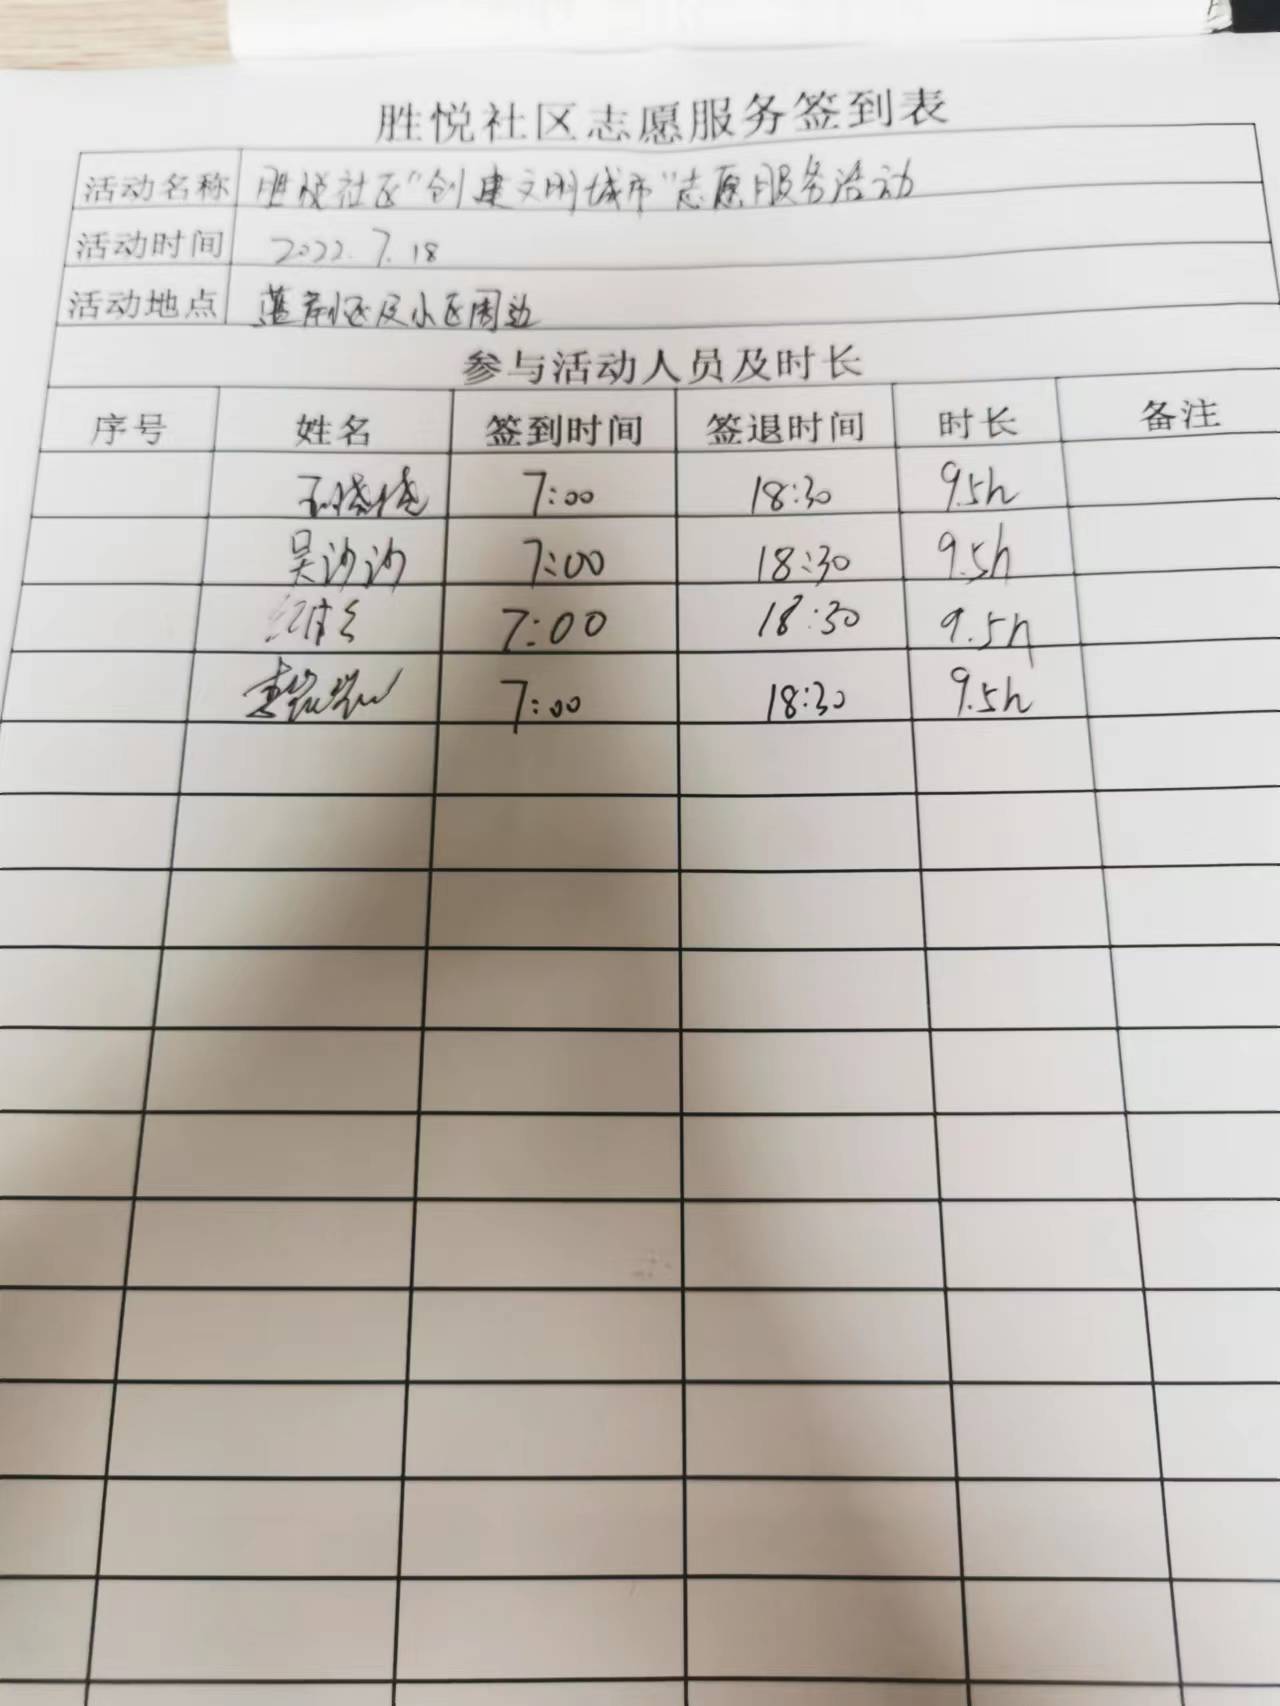 胜悦社区志愿服务签到表
活动名称 胜悦社区“创建文明城市”志愿服务活动
活动时间 2022.7.18
活动地点 蓝岸小区及小区周边
参与活动人员及时长
序号 姓名 签到时间 签退时间 时长 备注
7:00 18:30 9.5h
吴沙沙 7:00 18:30 9.5h
7:00 18:30 9.5h
7:00 18:30 9.5h